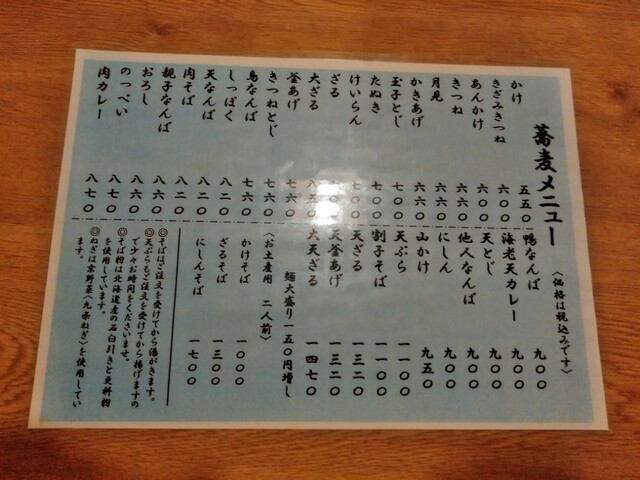 蕎麦メニュー
〈価格は税込みです〉
かけ 五五〇
きざみきつね 六〇〇
あんかけ 六〇〇
きつね 六六〇
月見 六六〇
かきあげ 六六〇
玉子とじ 七〇〇
たぬき 七〇〇
けいらん 七〇〇
ざる 〇〇
大ざる 八五〇
釜あげ 七六〇
きつねとじ 七六〇
鳥なんば 七六〇
しっぽく 八二〇
天なんば 八二〇
肉そば 八二〇
親子なんば 八六〇
おろし 八六〇
のっぺい 八七〇
肉カレー 八七〇
鴨なんば 九〇〇
海老天カレー 九〇〇
天とじ 九〇〇
他人なんば 九〇〇
にしん 九〇〇
山かけ 九五〇
天ぷら 一一〇〇
割子そば 一一〇〇
天ざる 一三二〇
天釜あげ 一三二〇
大天ざる 一四七〇
麺大盛り一五〇円増し
〈お土産用 二人前〉
かけそば 一〇〇〇
ざるそば 一三〇〇
にしんそば 一七〇〇
◎そばはご注文を受けてから湯がきます。
◎天ぷらもご注文を受けてから揚げますの
で少々お時間をくださいませ。
◎そば粉は北海道産の石臼引きと更科粉
を使用しています。
◎ねぎは京野菜(九条ねぎ)を使用してい
ます。